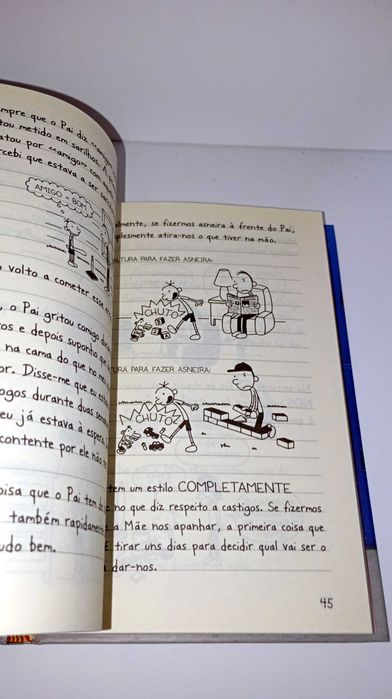 mpre que o Pai diz
tou metido em sarilhos. A
atou por «amigo» com
rcebi que estava a ser
AMIGO BOM
o volto a cometer esse
, o Pai gritou comigo
ros e depois suponho
na cama do que no
or. Disse-me que eu
ogos durante duas
eu já estava à espera
contente por ele não
oisa que o Pai tem de
também rapidamente
udo bem.
almente, se fizermos asneira à frente do Pai,
plesmente atira-nos o que tiver na mão.
ALTURA PARA FAZER ASNEIRA:
CHUTO!
TURA PARA FAZER ASNEIRA:
CHUTO!
tem um estilo COMPLETAMENTE
e no que diz respeito a castigos. Se fizermos
e a Mãe nos apanhar, a primeira coisa que
é tirar uns dias para decidir qual vai ser o
a dar-nos.
45